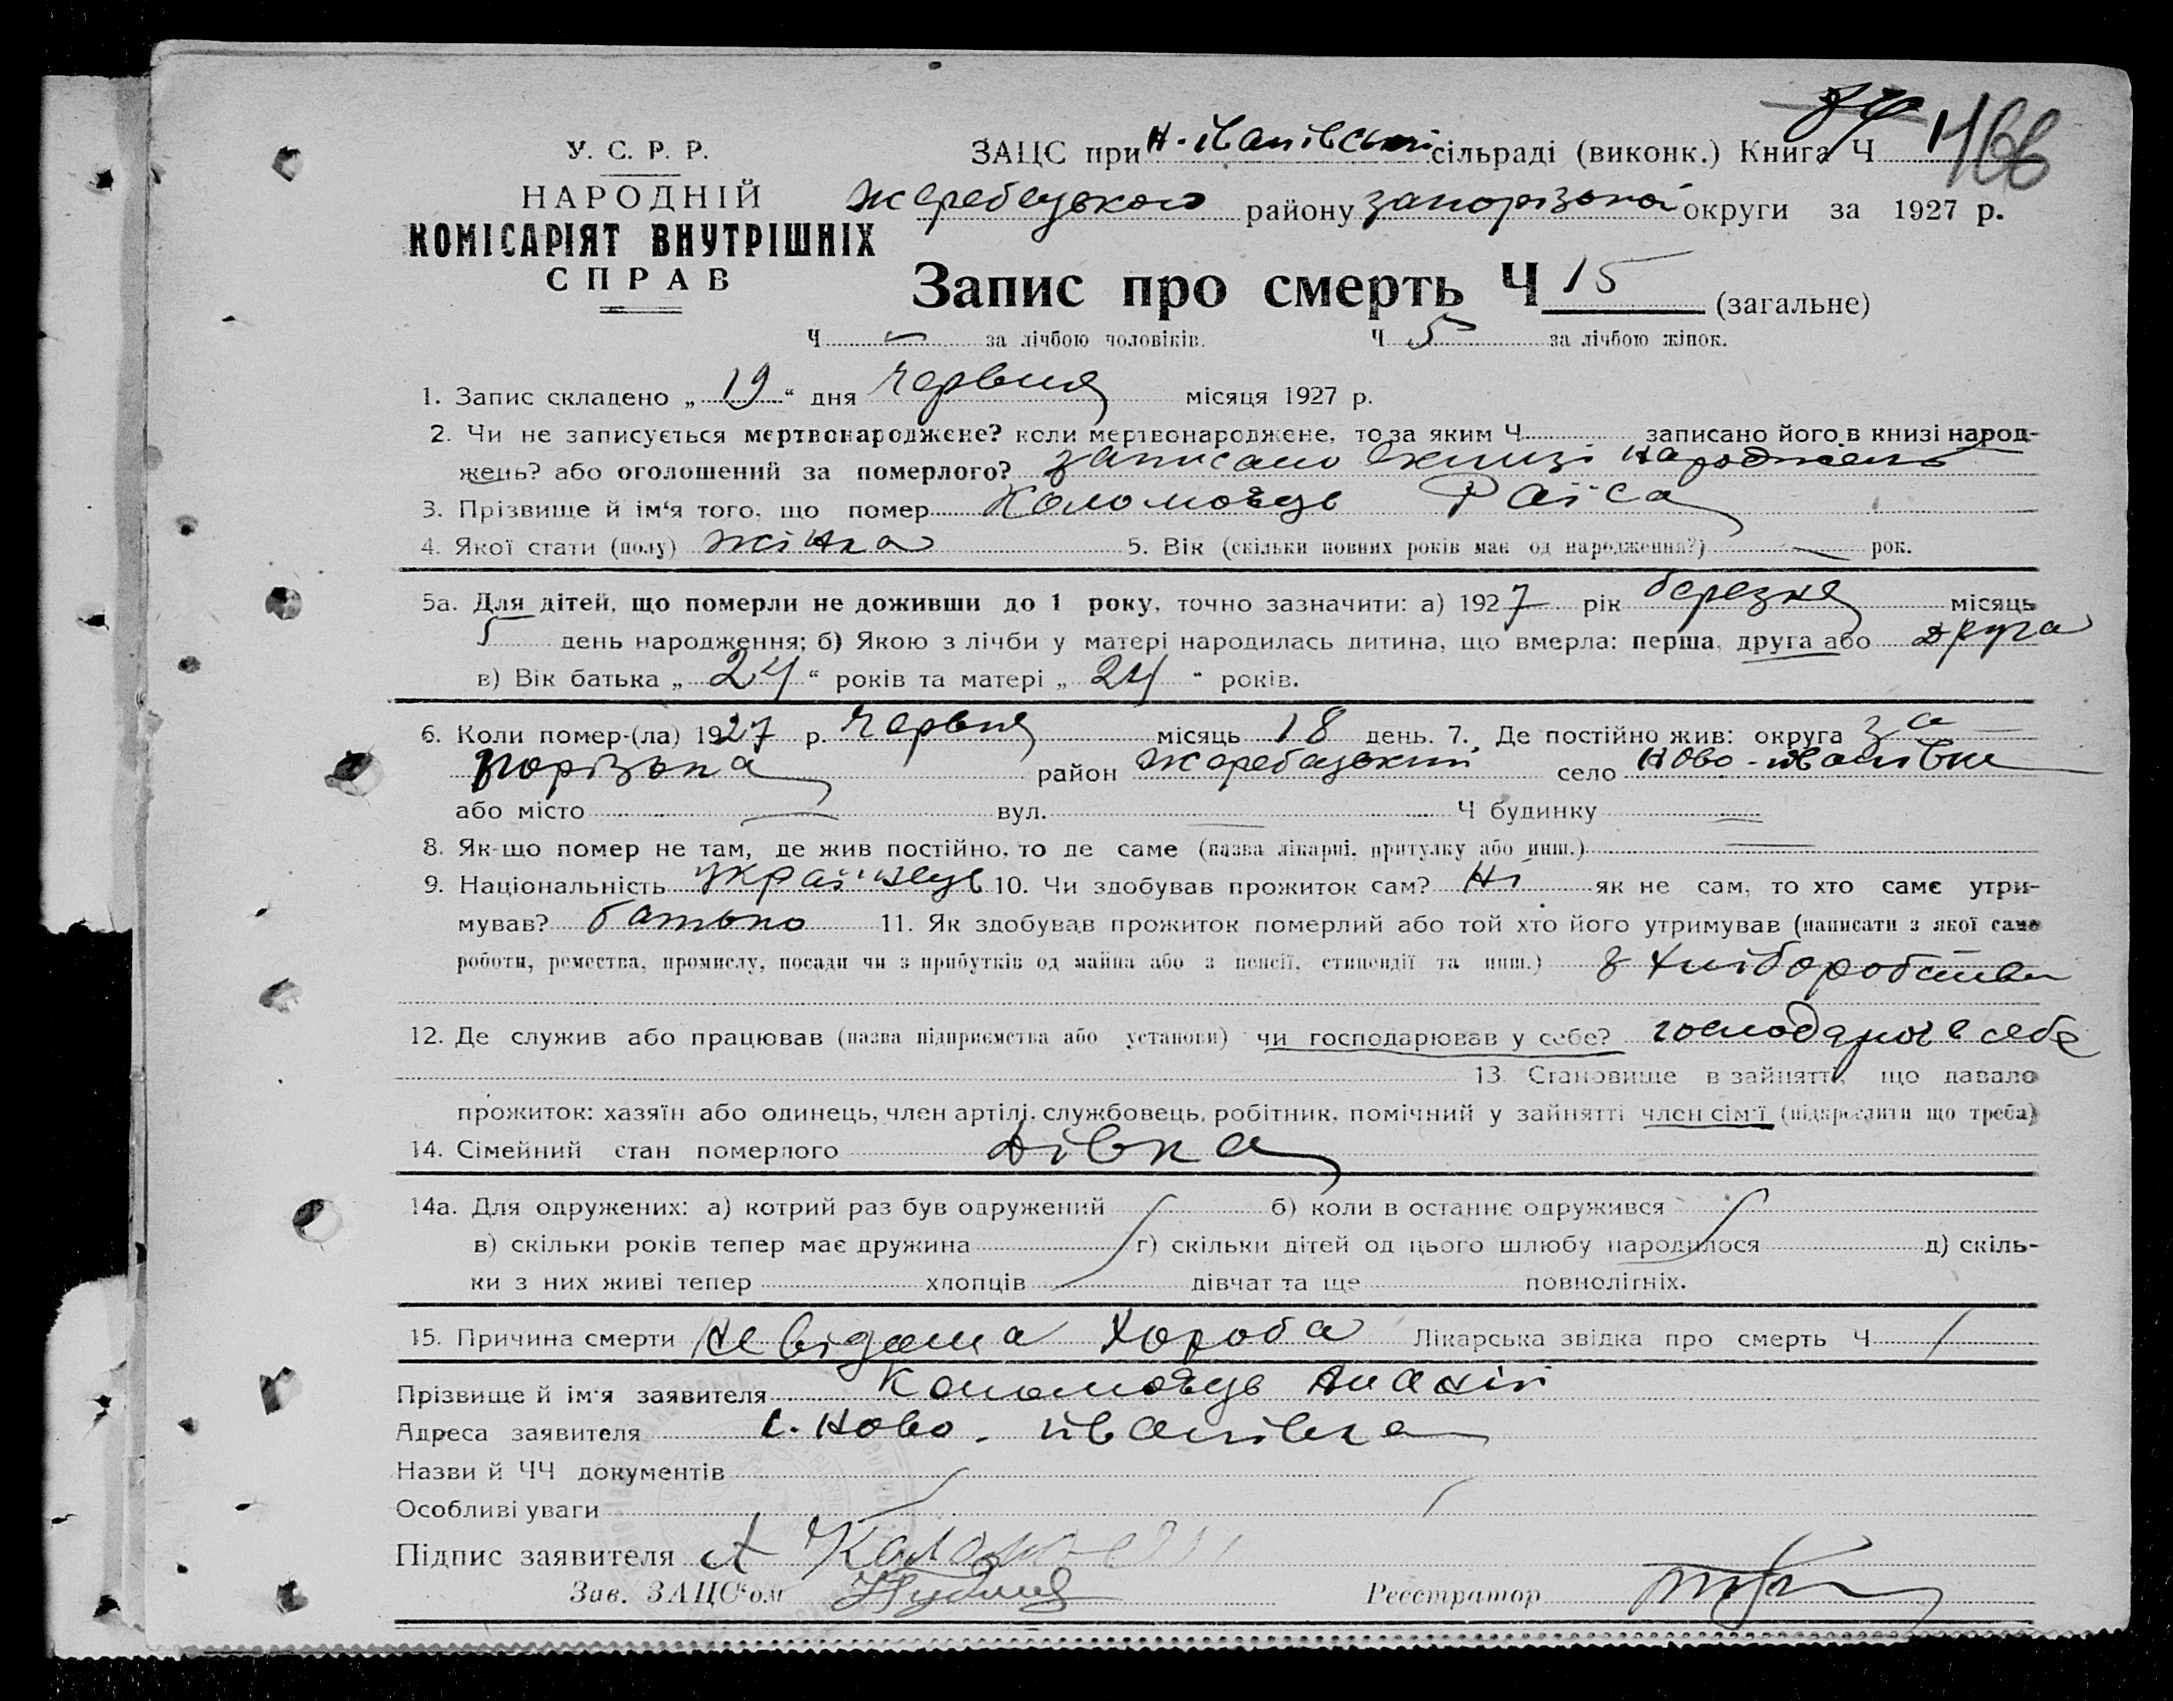 166
У. С. Р. Р.
НАРОДНІЙ
КОМІСАРІЯТ ВНУТРІШНІХ
СПРАВ
ЗАЦС при Н-Іванівській сільраді (виконк.) Книга Ч
Жеребецького району Запорізької округи за 1927 р.
Запис про смерть Ч 15 (загальне)
Ч за лічбою чоловіків. Ч 5 за лічбою жінок.
1. Запис складено „ 19 “ дня червня місяця 1927 р.
2. Чи не записується мертвонароджене? коли мертвонароджене, то за яким Ч записано його в книзі народ-
жень? або оголошений за померлого? записано в книзі народжень
3. Прізвище й ім‘я того, що помер Коломоєць Раїса
4. Якої стати (полу) жінка 5. Вік (скільки повних років має од народження?) — рок.
5а. Для дітей, що померли не доживши до 1 року, точно зазначити: а) 1927 рік березня місяць
5 день народження; б) Якою з лічби у матері народилась дитина, що вмерла: перша, друга або друга
в) Вік батька „ 24 “ років та матері „ 24 “ років.
6. Коли помер-(ла) 1927 р. червня місяць 18 день. 7. Де постійно жив: округа За-
порізька район Жеребецький село Ново-Іванівка
або місто — вул. — Ч будинку —
8. Як-що помер не там, де жив постійно, то де саме (назва лікарні, притулку або инш.) —
9. Національність українець 10. Чи здобував прожиток сам? Ні як не сам, то хто саме утри-
мував? батько 11. Як здобував прожиток померлий або той хто його утримував (написати з якої саме
роботи, ремества, промислу, посади чи з прибутків од майна або з пенсії, стипендії та инш.) з хліборобства
12. Де служив або працював (назва підприємства або установи) чи господарював у себе? господарює в себе
13. Становище в зайнятті, що давало
прожиток: хазяїн або одинець, член артілі, службовець, робітник, помічний у зайнятті член сім‘ї (підкреслити що треба)
14. Сімейний стан померлого дівка
14а. Для одружених: а) котрий раз був одружений б) коли в останнє одружився
в) скільки років тепер має дружина г) скільки дітей од цього шлюбу народилося д) скіль-
ки з них живі тепер хлопців дівчат та ще повнолітніх.
15. Причина смерти невідома хороба Лікарська звідка про смерть Ч
Прізвище й ім‘я заявителя Коломоєць
Адреса заявителя с. Ново-Іванівка
Назви й ЧЧ документів
Особливі уваги
Підпис заявителя А Коломоєць
Зав. ЗАЦС‘ом Реєстратор